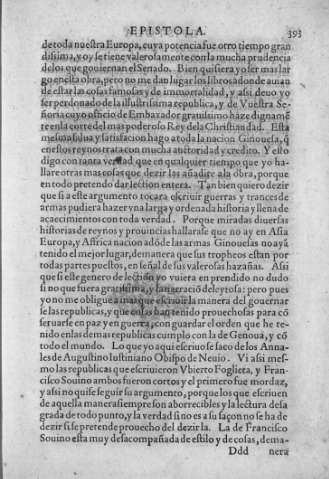 EPISTOLA. 393
de toda nuestra Europa, cuya potencia fue otro tiempo gran
dissima, y oy se tiene valerosamente con la mucha prudencia
de los que gouiernan el Senado. Bien quisiera yo ser mas lar
go en esta obra, pero no me dan lugar los libros adonde auian
de estar las cosas famosas y de immortalidad, y assi deuo yo
ser perdonado de la illustrissima republica, y de Vuestra Se-
ñoria cuyo officio de Embaxador grauissimo haze dignamē
te en la corte del mas poderoso Rey dela Christiandad. Esta
mesma salua y satisfacion hago a toda la nacion Ginouesa, q̃
en estos reynos trata con mucha autoridad y credito. Y esto
digo con tanta verdad que en qualquier tiempo que yo ha-
llare otras mas cosas que dezir las añadire a la obra, porque
en todo pretendo dar lection entera. Tan bien quiero dezir
que si a este argumento tocara escriuir guerras y trances de
armas pudiera hazer vna larga y ordenada historia y llena de
acaecimientos con toda verdad. Porque miradas diuersas
historias de reynos y prouincias hallarase que no ay en Asia
Europa, y Affrica nacion adōde las armas Ginouesas no ayā
tenido el mejor lugar, demanera que sus tropheos estan por
todas partes puestos, en señal de sus valerosas hazañas. Assi
que si este genero de lection yo vuiera en prendido no dudo
si no que fuera grandissima, y la narraciō deleytosa: pero pues
yo no me obligue a mas que escriuir la manera del gouernar
se las republicas, y que cosas han tenido prouechosas para cō
seruarse en paz y en guerra, con guardar el orden que he te-
nido en las demas republicas cumplo con la de Genoua, y cō
todo el mundo. Lo que yo aqui escriuo se saco de los Anna-
les de Augustino Iustiniano Obispo de Neuio. Vi assi mes-
mo las republicas que escriuieron Vberto Foglieta, y Fran-
cisco Souino ambos fueron cortos y el primero fue mordaz,
y assi no quise seguir su argumento, porque los que escriuen
de aquella manera siempre son aborrecibles y la lectura desa
grada de todo punto, y la verdad si no es a su sazon no se ha de
dezir si se pretende prouecho del dezir la. La de Francisco
Souino esta muy desacompañada de estilo y de cosas, dema-
Ddd nera